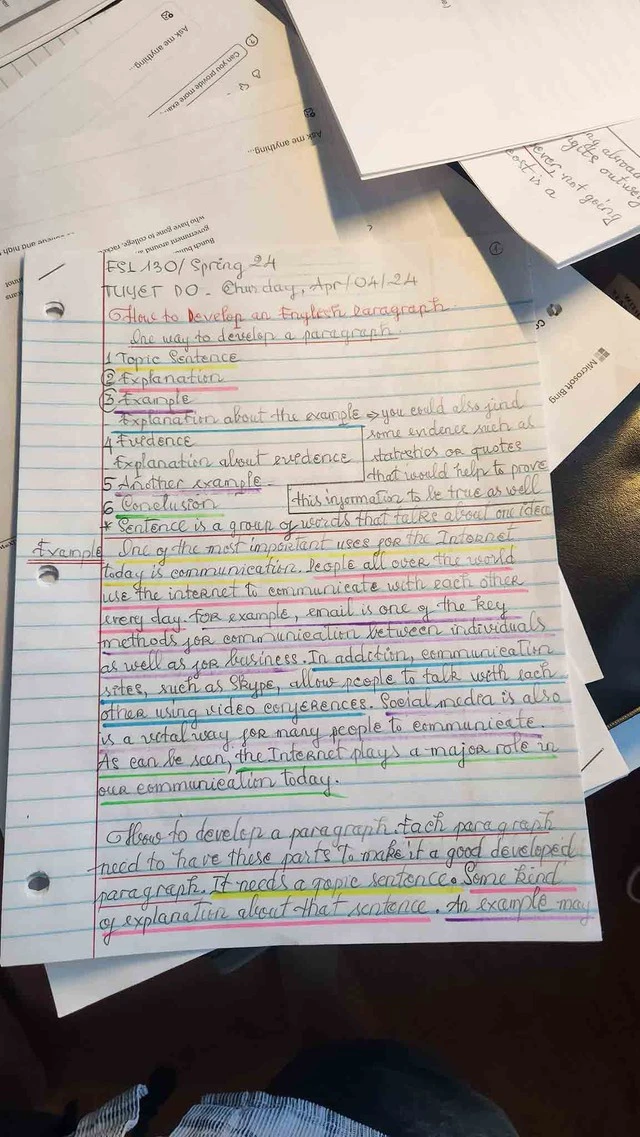 Ask me anything
Can you provide more exa
Ask me anything...
government and around
who have gone to college,
ng abroad
ever, not going
cost is a
Microsoft Bing
ESL 130/ Spring 24
TUYET DO - Thurday, Apr/04/24
How to Develop an English Paragraph
One way to develop a paragraph.
1 Topic Sentence
2 Explanation
3 Example
Explanation about the example ⇒ you could also find
some endence such as
4 Evedence
statastios or quotes
Explanation about evedence
that would help to prove
5 Another example
this information to be true as well
6 Conclusion
* Sentence is a group of words that talks about one idea
Example One of the most important uses for the Internet
today is communication. People all over the world
use the internet to communicate with each other
every day. For example, email is one of the key
methods for communication between individuals
as well as for business. In addiction, communication
sites, such as Skype, allow people to talk with each
other using video conferences. Social media is also
is a vital way for many people to communicate.
As can be seen, the Internet plays a major role in
our communication today.
How to develop a paragraph. Each paragraph
need to have these parts to make it a good developed
paragraph. It needs a topic sentence. Some kind
of explanation about that sentence. An example may